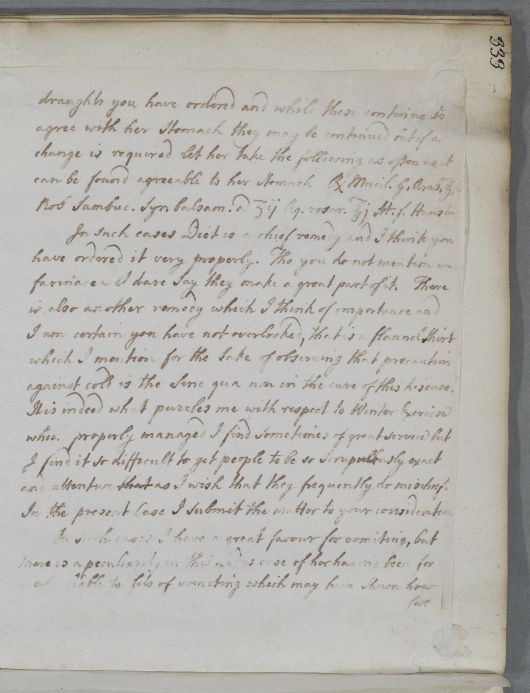 333
draughts you have ordered and while these continue to
agree with her Stomach they may be continued but if a
change is required let her take the following as often as it
can be found agreeable to her Stomach ℞ Mucil. G. Arab. ℥
Rob Sambuc. Syr. balsam. a ʒij Aq. rosar. ℥j, ft. f. Haustus
In such cases Diet is a chief remedy and I think you
have ordered it very properly. Tho you do not mention
farinacea I dare say they make a great part of it. There
is also another remedy which I think of importance and
I am certain you have not overlooked, that is a flannel Shirt
which I mention for the sake of observing that precaution
against cold is the Sine qua non in the cure of this disease.
It is indeed what puzzles me with respect to Winter Exercise
when properly managed I find sometimes of great service but
I find it so difficult to get people to be so scrupulously exact
and attentive that as I wish that they frequently do mischief.
In the present Case I submit the matter to your consideration
In such cases I have a great favour for vomiting, but
there is a peculiarity in this Ladys case of her having been for
liable to fits of vomiting which may have shown how
far